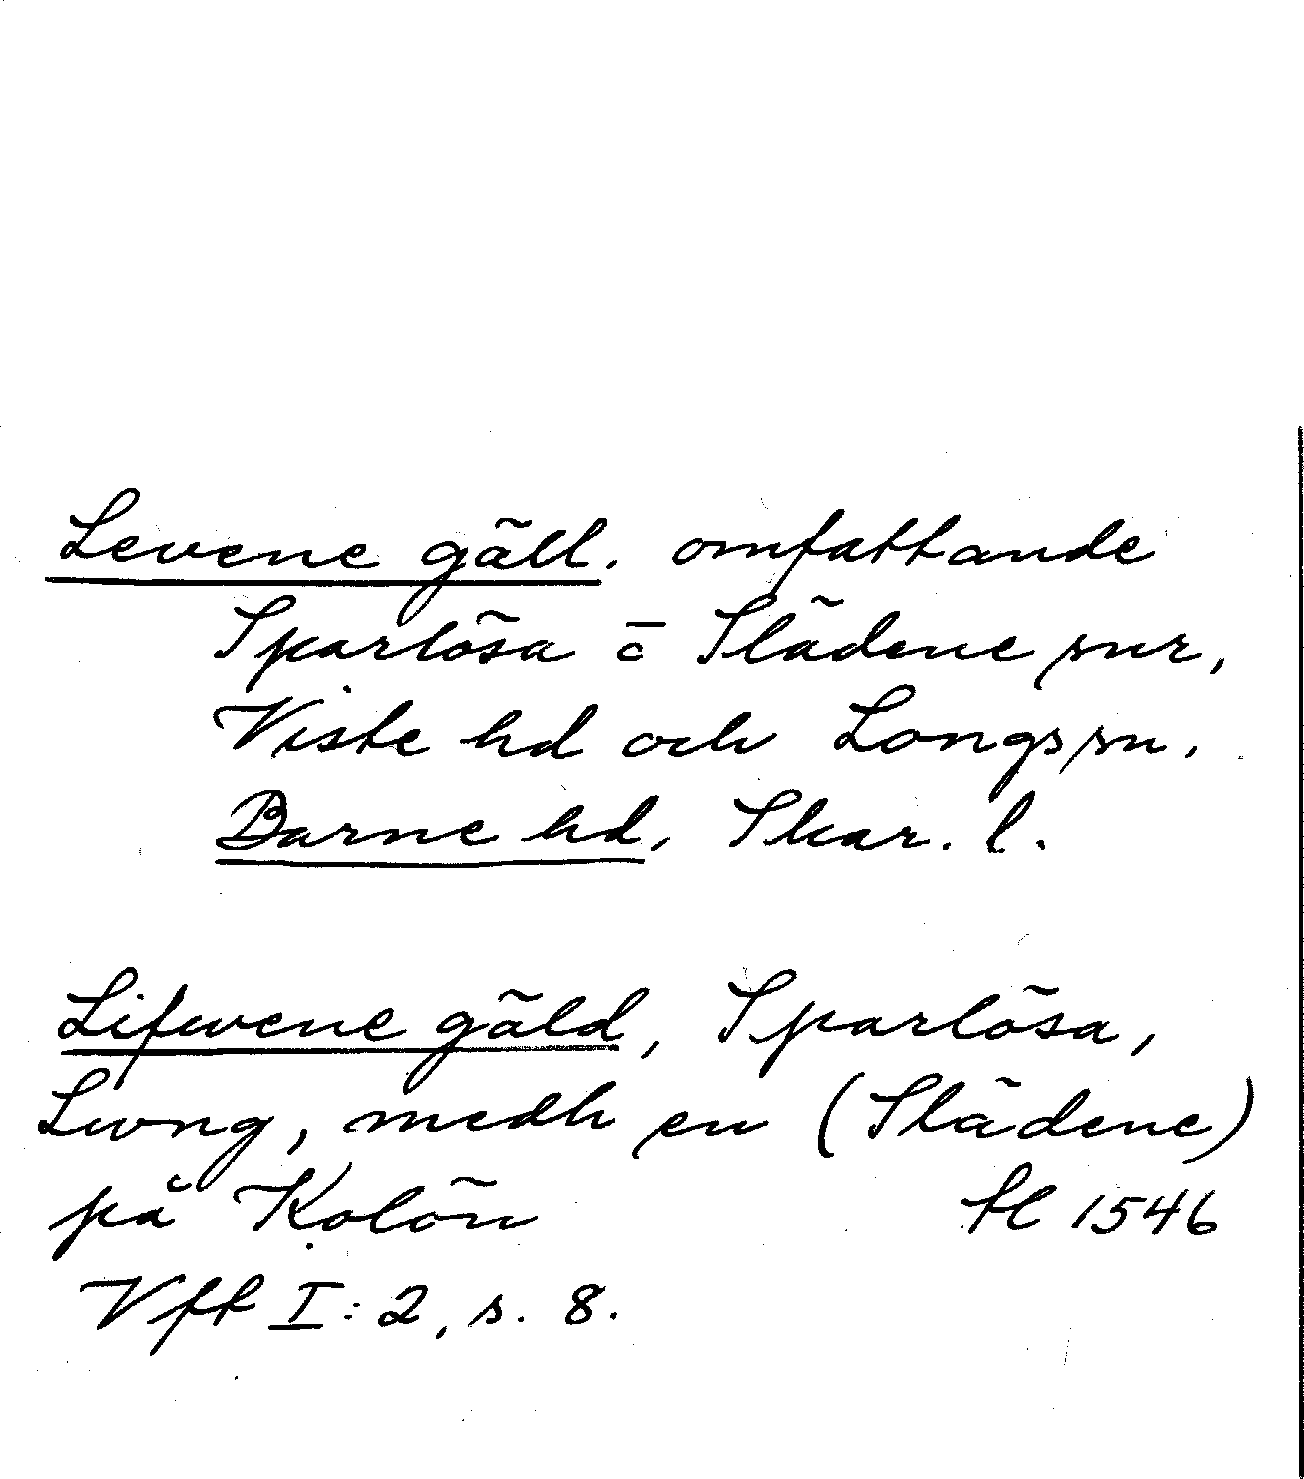 Levene gäll. omfattande
Sparlösa o Slädene snr,
Viste hd och Longs sn.
Barne hd, Skar. l.
Lifwene gäld, Sparlösa,
Lwng, medh en (Slädene)
på Kolön tl 1546
Vft I:2, s. 8.